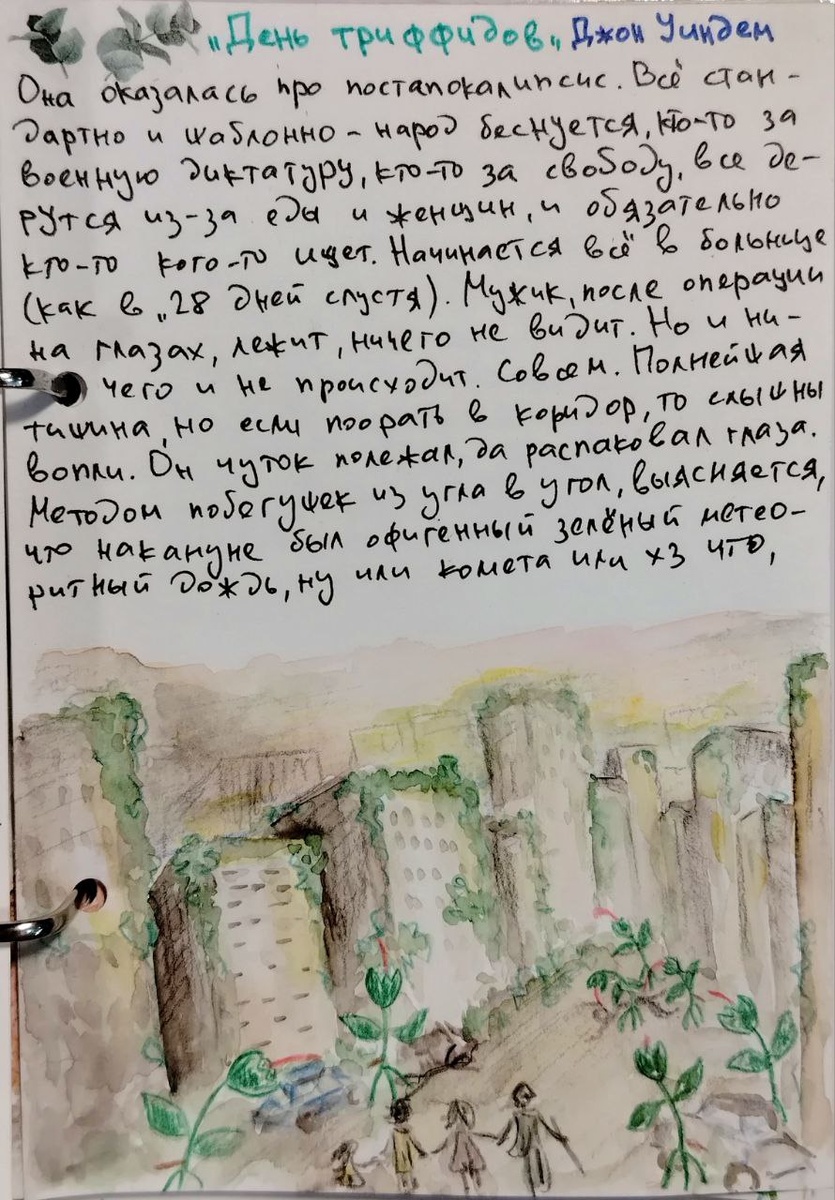 „День триффидов„ Джон Уиндем
Она оказалась про постапокалипсис. Всё стан-
дартно и шаблонно - народ беснуется, кто-то за
военную диктатуру, кто-то за свободу, все де-
рутся из-за еды и женщин, и обязательно
кто-то кого-то ищет. Начинается всё в больнице
(как в „28 дней спустя). Мужик, после операции
на глазах, лежит, ничего не видит. Но и ни-
чего и не происходит. Совсем. Полнейшая
тишина, но если поорать в коридор, то слышны
вопли. Он чуток полежал, да распаковал глаза.
Методом побегушек из угла в угол, выясняется,
что накануне был офигенный зелёный метео-
ритный дождь, ну или комета или хз что,